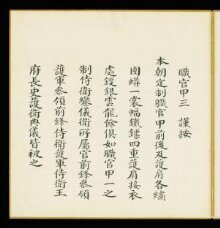 職官甲三　謹按
本朝定制職官甲前後及護肩各繡
團蟒一裳幅鐵鍱四重護肩接衣
處鋄銀雲龍餘俱如職官甲一之
制侍衛鑾儀衛所屬官前鋒叅領
護軍叅領前鋒侍衛護軍侍衛王
府長史護衛典儀皆被之